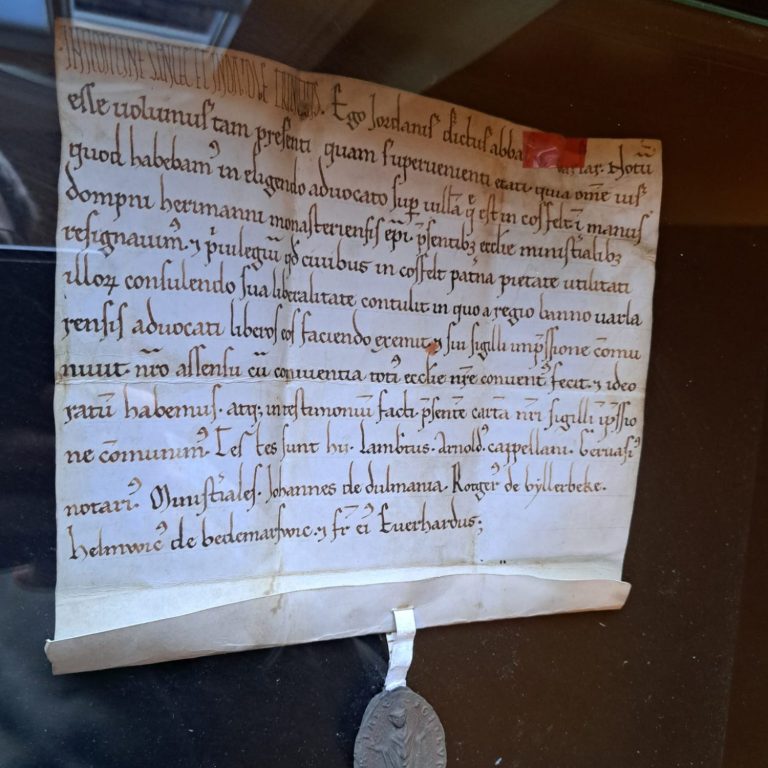 IN NOMINE SANCTE ET INDIVIDUE TRINITATIS. Ego Jordanis dictus abba varlar. Notū
esse uolumus tam presenti quam superuenienti etati quia ome ius
quod habebamꝰ in eligendo aduocato sup uilla q est in cosfelt ī manus
dompni herimanni monasteriensis epi psentibꝫ ecclie ministialibꝫ
resignauimꝰ ⁊ priulegiū qd ciuibus in cosfelt patna pietate utilitati
illoꝝ consulendo sua liberalitate contulit in quo a regio banno uarla
rensis aduocati liberos eos faciendo exemit ⁊ sui sigilli impssione cōmu
niuit nro assensu cū conniuentia totiꝰ ecclie nre conuentꝰ fecit ⁊ ideo
ratū habemus. atqꝫ in testimoniū facti psentē cartā nri sigilli īpssio
ne cōmunimꝰ. Testes sunt hij. Lambtus. Arnoldꝰ. cappellani. Geruasiꝰ
notariꝰ. Ministiales. Johannes de dulmania. Rotgerꝰ de byllerbeke.
helmwicꝰ de bedemarswic. ⁊ fr eiꝰ Euerhardus;